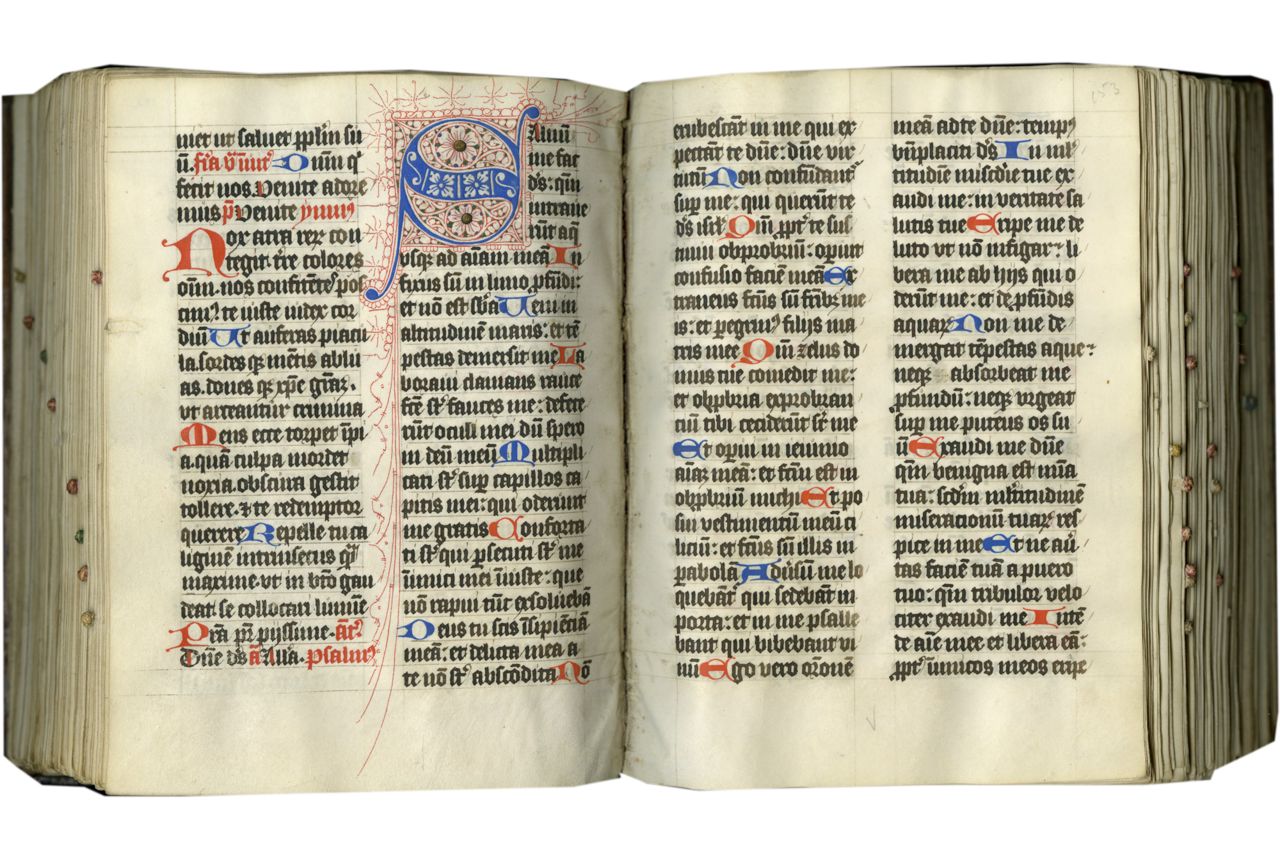 met ut salvet pplm su
ū. fīa v̄ invit̄ Dnm̄ q̄
fecit nos. Venite adore
mus p̄ Venite ymnꝰ
Nox atra reꝝ con
tegit t̄re colores
om̄. nos confitētes pos
cimꝰ te iuste iudex cor
diū Ut auferas piacu
la. sordes qꝫ mētis ablu
as. dones qꝫ xp̄e grāꝫ.
vt arceantur crimina
Mens ecce torpet īpi
a. quā culpa mordet
noxia. obscura gestit
tollere. ⁊ te redemptor
querere Repelle tu ca
liginē intrinsecus qm̄
maxime. vt in bt̄o gau
deat. se collocari lumīe
Pr̄a pr̄ pijssime. Ant̄.
Dn̄e ds̄ a Ana. Psalmꝰ
Alvum
me fac
ds̄: qm̄
intrave
rūt aq̄
usqꝫ ad aīam meā In
fixus sū in limo pfūdi:
et nō est sb̄a Veni in
altitudinē maris: et tē
pestas demersit me La
boravi clamans rauce
fc̄e st̄ fauces mee: defece
rūt oculi mei dū spero
in deū meū Multipli
cati st̄ sup capillos ca
pitis mei: qui oderunt
me gratis Conforta
ti st̄ qui psecuti st̄ me
inimici mei iniuste: que
nō rapui tūc exsolvebā
Deus tu scis īsipiētiā
meā: et delicta mea a
te nō st̄ abscōdita Nō
erubescāt in me qui ex
pectāt te dn̄e: dn̄e vir
tutū Non confūdantᷣ
sup me: qui querūt te
ds̄ isrl̄ Qm̄ ppt̄ te sus
tinui obprobriū: opuit
confusio faciē meā Ex
traneus fctūs sū frībꝫ me
is: et peregrinꝰ filijs ma
tris mee Qm̄ zelus do
mus tue comedit me:
et obpbria exprobran
ciū tibi ceciderūt sr̄ me
Et opui in ieiunio
aīaꝫ meā: et fctū est in
obpbriū michi Et po
sui vestimentū meū ci
liciū: et fctūs sū illis in
parabolā Adūsū me lo
quebātᷣ qui sedebāt in
porta: et in me psalle
bant qui bibebant vi
nū Ego vero orōnē
meā ad te dn̄e: tempꝰ
bn̄placiti ds̄ In mul
titudinē misc̄die tue ex
audi me: in veritate sa
lutis tue Eripe me de
luto ut nō infigar: li
bera me ab hijs qui o
derūt me: et de pfūdis
aquaꝝ Non me de
mergat tēpestas aque:
neqꝫ absorbeat me
pfundū: neqꝫ urgeat
sup me puteus os su
ū Exaudi me dn̄e
qm̄ benigna est mīa
tua: scdm̄ mltitudinē
miseracionū tuaꝝ res
pice in me Et ne aū
tas faciē tuā a puero
tuo: qm̄ tribulor velo
citer exaudi me Intē
de aīe mee et libera eā:
ppt̄ inimicos meos eripe
153